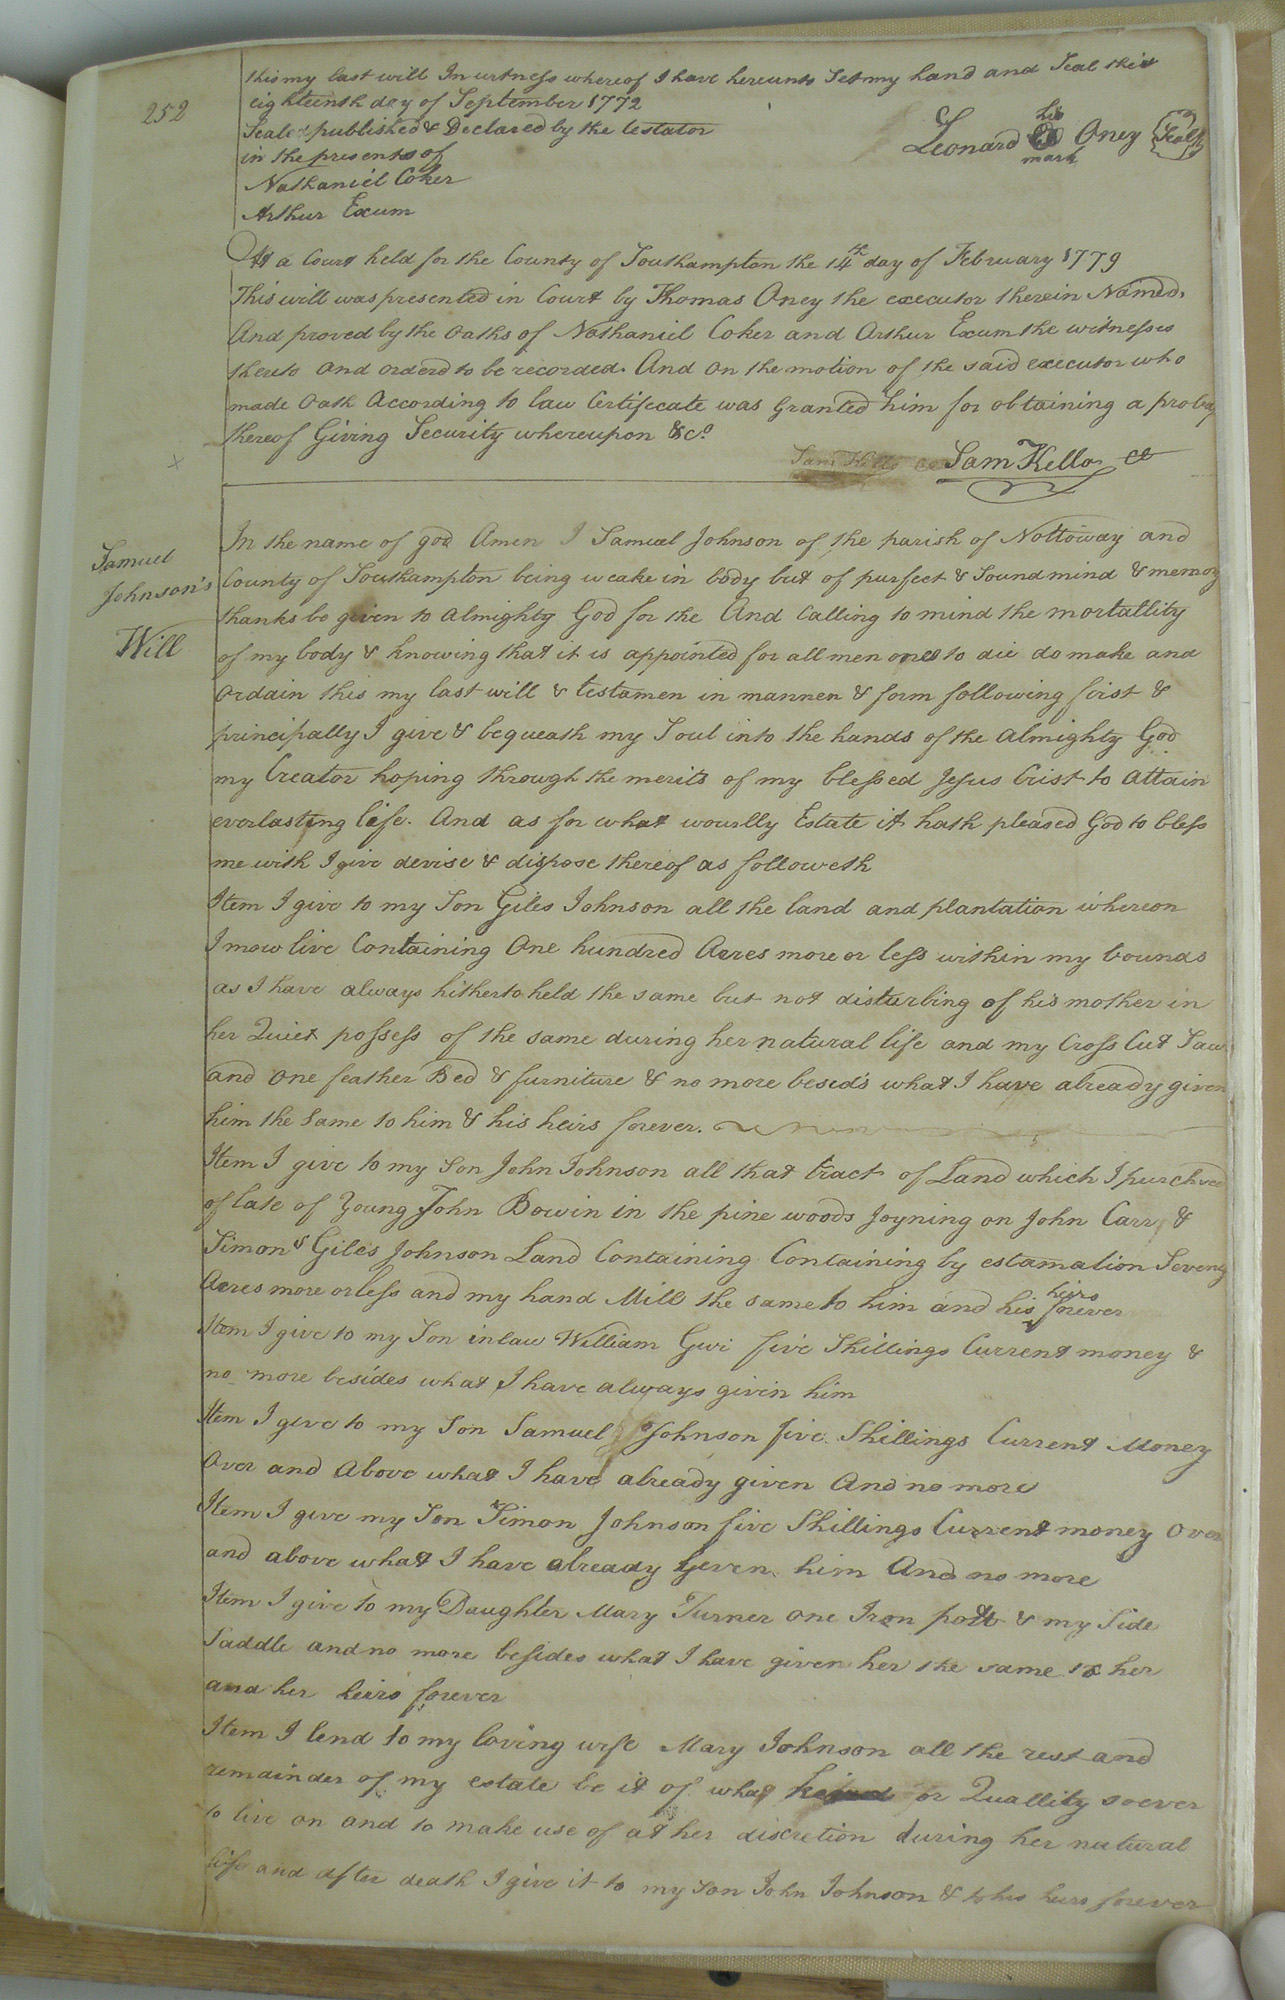 252
this my last will In witness whereof I have hereunto Set my hand and Seal this
eighteenth day of September 1772
Sealed published & Declared by the testator
in the presents of
Nathaniel Coker
Arthur Exum
his
Leonard Oney Seal
mark
At a Court held for the County of Southampton the 14th day of February 1779
This will was presented in Court by Thomas Oney the executor therein Named.
And proved by the oaths of Nathaniel Coker and Arthur Exum the witnesses
thereto and orderd to be recorded. And on the motion of the said executor who
made Oath According to law Certificate was Granted him for obtaining a probat
thereof Giving Security whereupon &c.
Sam Kello Sam Kello
Samuel
Johnson's
Will
In the name of god Amen I Samuel Johnson of the parish of Nottoway and
County of Southampton being weake in body but of purfect & Sound mind & memory
thanks be given to Almighty God for the And Calling to mind the mortallity
of my body & knowing that it is appointed for all men ones to die do make and
Ordain this my last will & testamen in mannen & form following first &
principally I give & bequeath my Soul into the hands of the Almighty God
my Creator hoping through the merits of my blessed Jesus Crist to Attain
everlasting life. And as for what wourlly Estate it hath pleased God to bless
me with I give devise & dispose thereof as followeth
Item I give to my Son Giles Johnson all the land and plantation whereon
I now live Containing One hundred Acres more or less within my bounds
as I have always hitherto held the same but not disturbing of his mother in
her Quiet possess of the same during her natural life and my Cross Cut Saw
and one feather Bed & furniture & no more besed's what I have already given
him the Same to him & his heirs forever.
Item I give to my Son John Johnson all that tract of Land which I purchased
of late of Young John Bowin in the pine woods Joyning on John Carr &
Simon & Giles Johnson Land Containing Containing by estamation Seventy
Acres more or less and my hand Mill the same to him and his heirs forever
Item I give to my Son in law William Gwi five Shillings Current money &
no more besides what I have always given him
Item I give to my Son Samuel Johnson five Shillings Current Money
Over and Above what I have already given And no more
Item I give my Son Simon Johnson five Shillings Current money Over
and above what I have already Geven him And no more
Item I give to my Daughter Mary Turner one Iron pott & my Side
Saddle and no more besides what I have given her the same to her
and her heirs forever
Item I lend to my loving wife Mary Johnson all the rest and
remainder of my estate be it of what or Quallity soever
to live on and to make use of at her discretion during her natural
life and after death I give it to my son John Johnson & to his heirs forever